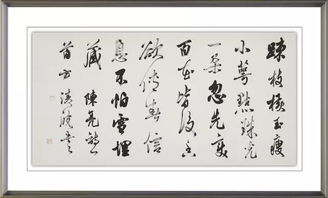 疎枝橫玉瘦
小萼點珠光
一朵忽先變
百花皆後香
欲傳春信
息不怕雪埋
藏 陳亮詩一
首